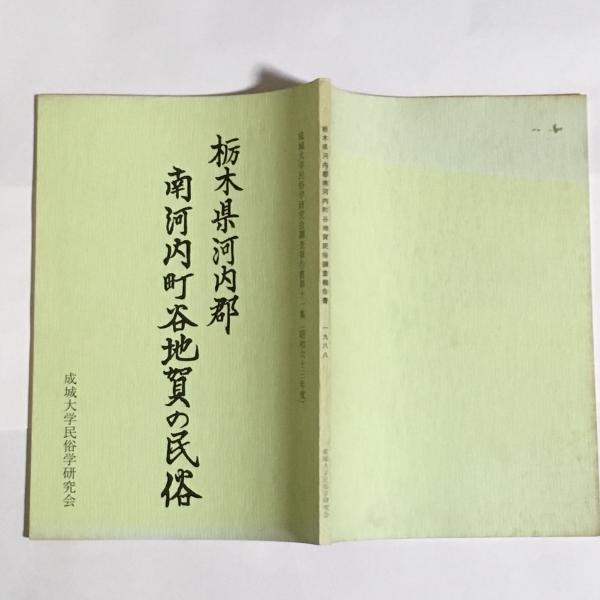 成城大学民俗学研究会調査報告書第十一集(昭和六十三年度)
栃木県河内郡
南河内町谷地賀の民俗
成城大学民俗学研究会
栃木県河内郡南河内町谷地賀民俗調査報告書 一九八八 成城大学民俗学研究会